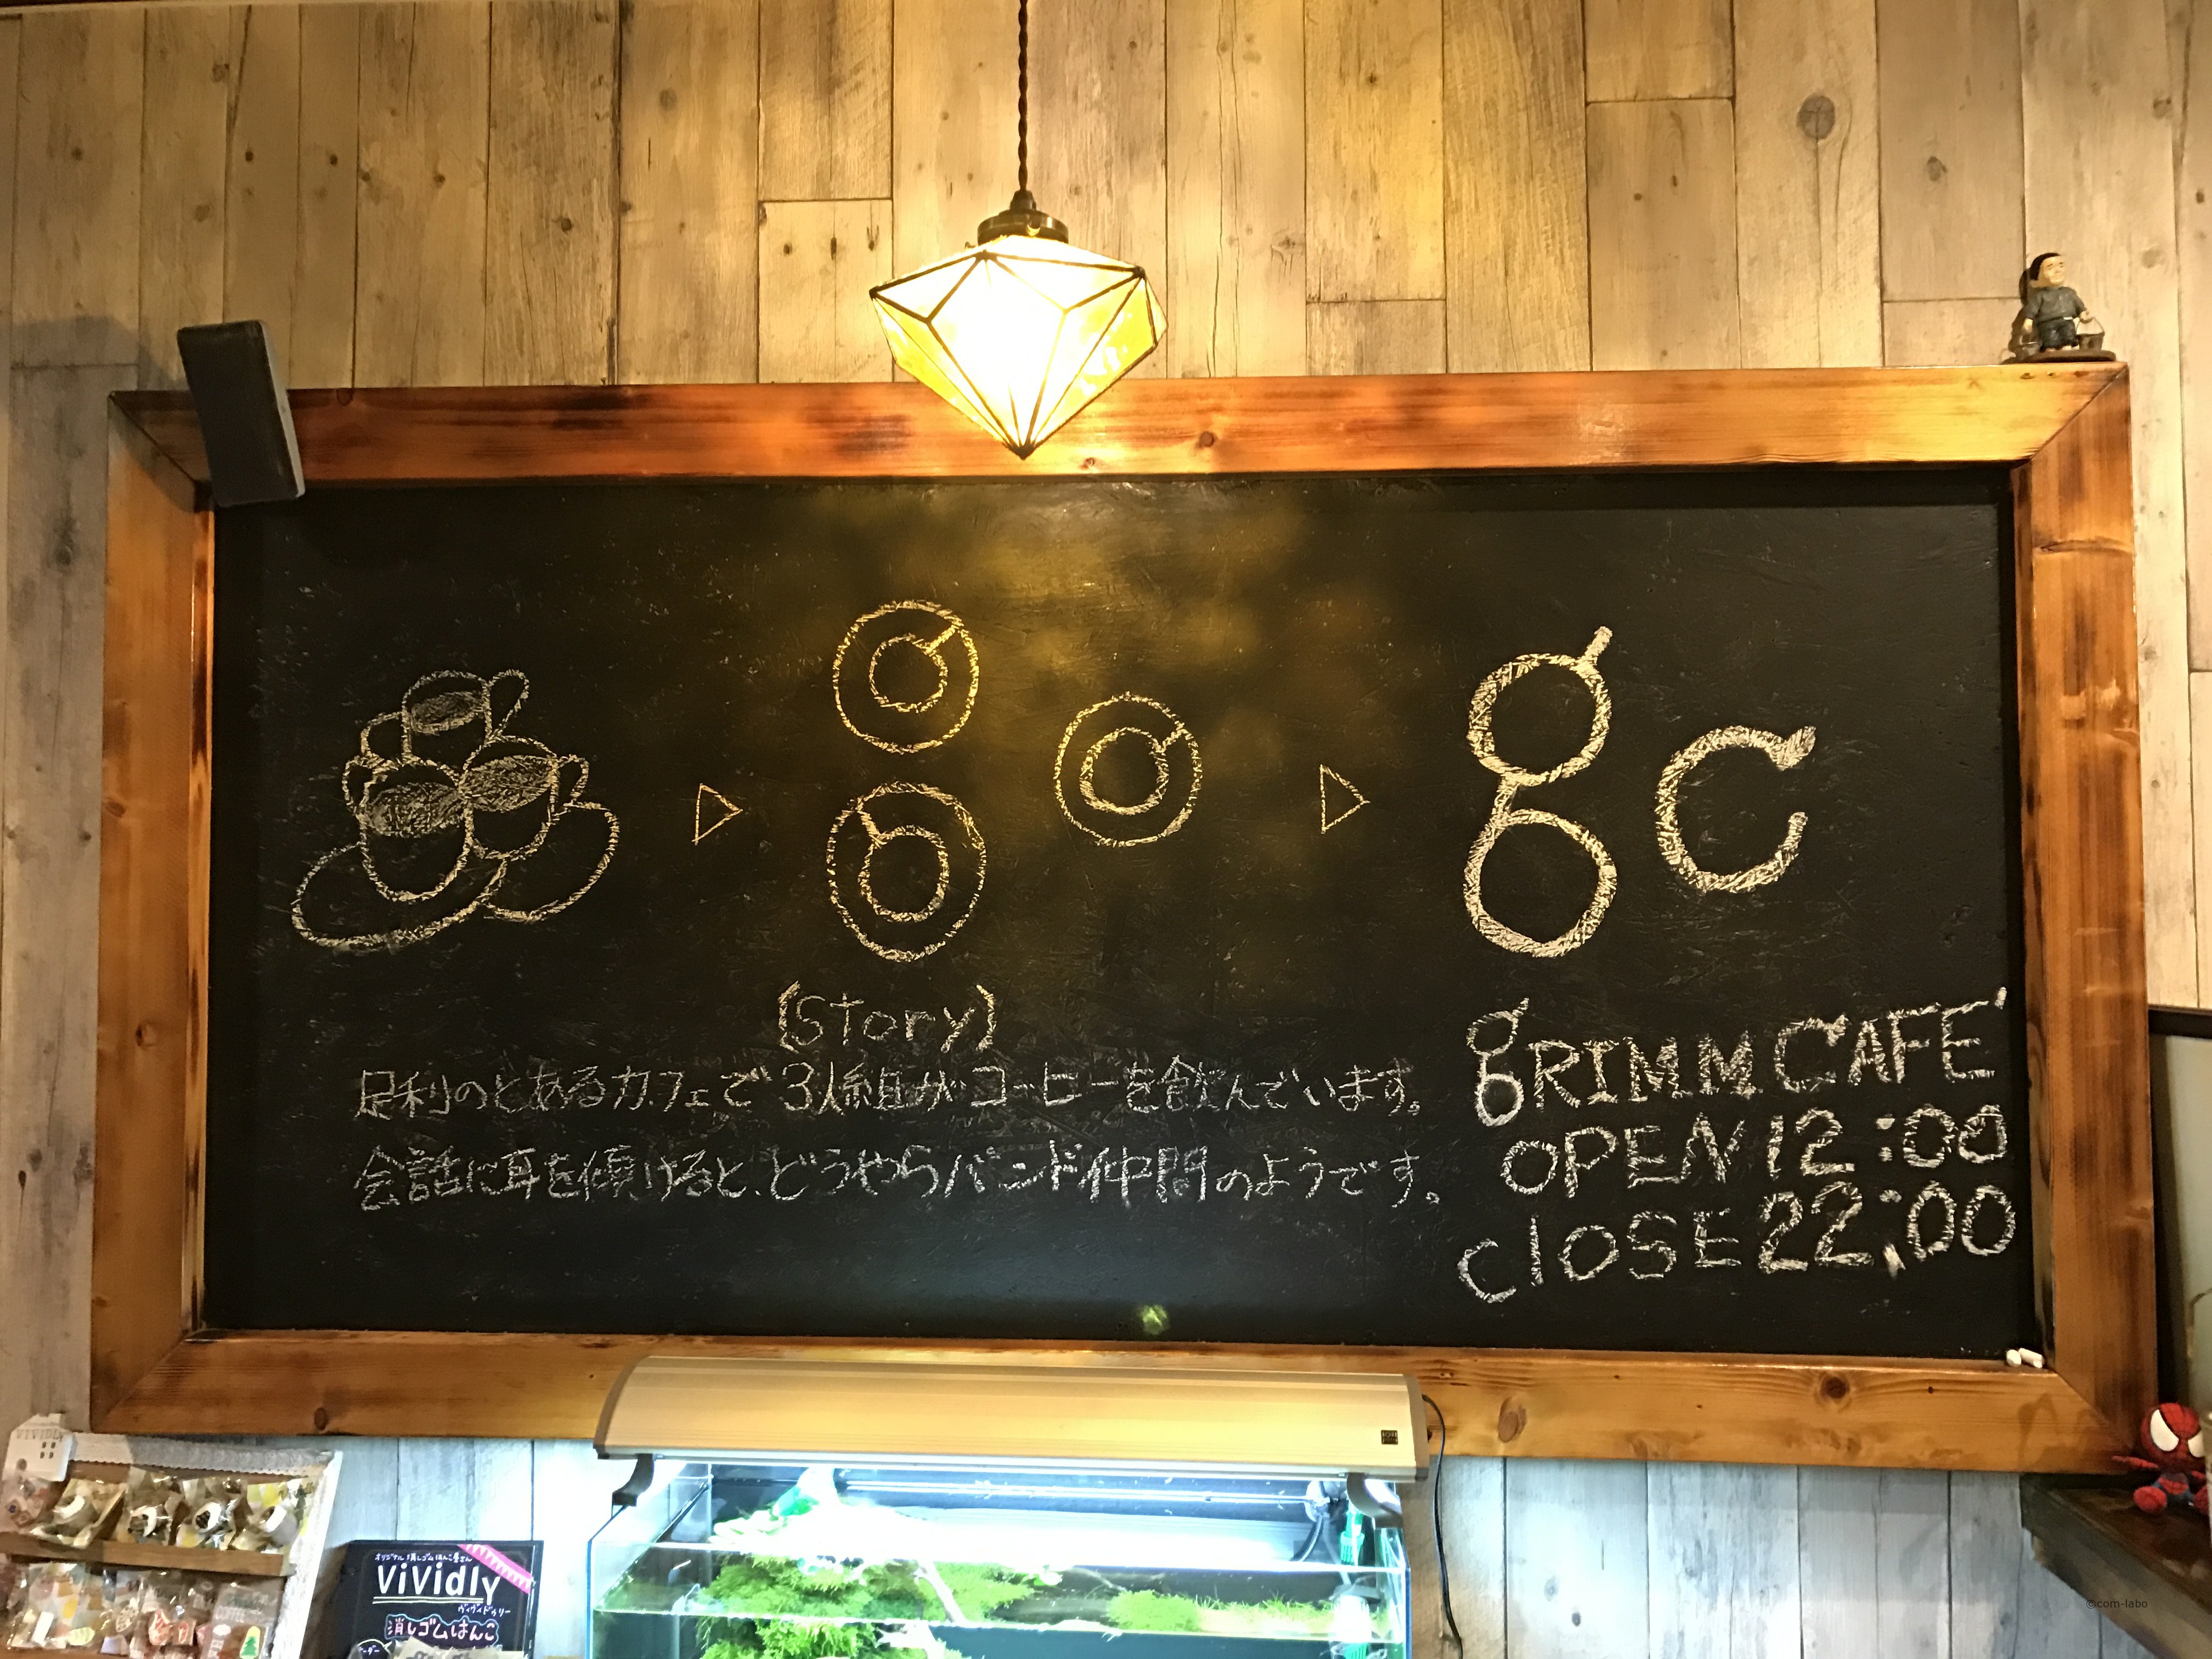 gc
(Story)
足利のとあるカフェで3人組がコーヒーを飲んでいます。
会話に耳を傾けると、どうやらバンド仲間のようです。
gRIMM CAFE
OPEN 12:00
ClOSE 22:00
VIVIDLY
オリジナル消しゴムはんこ屋さん
vividly
ヴィヴィドリー
消しゴムはんこ
オーダー
©com-labo